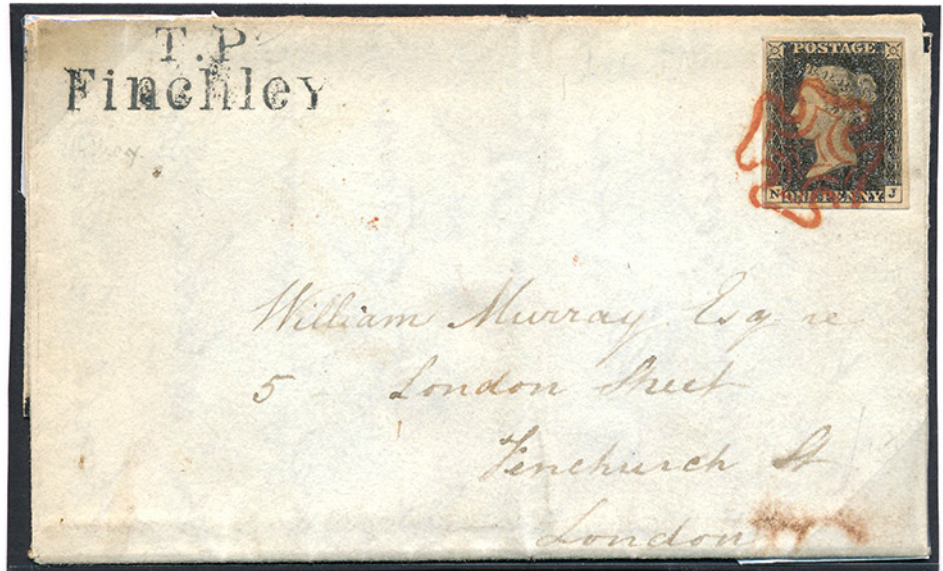 T.P
Finchley
POSTAGE
N ONE PENNY J
William Murray Esqre
5 London Street
Fenchurch St
London